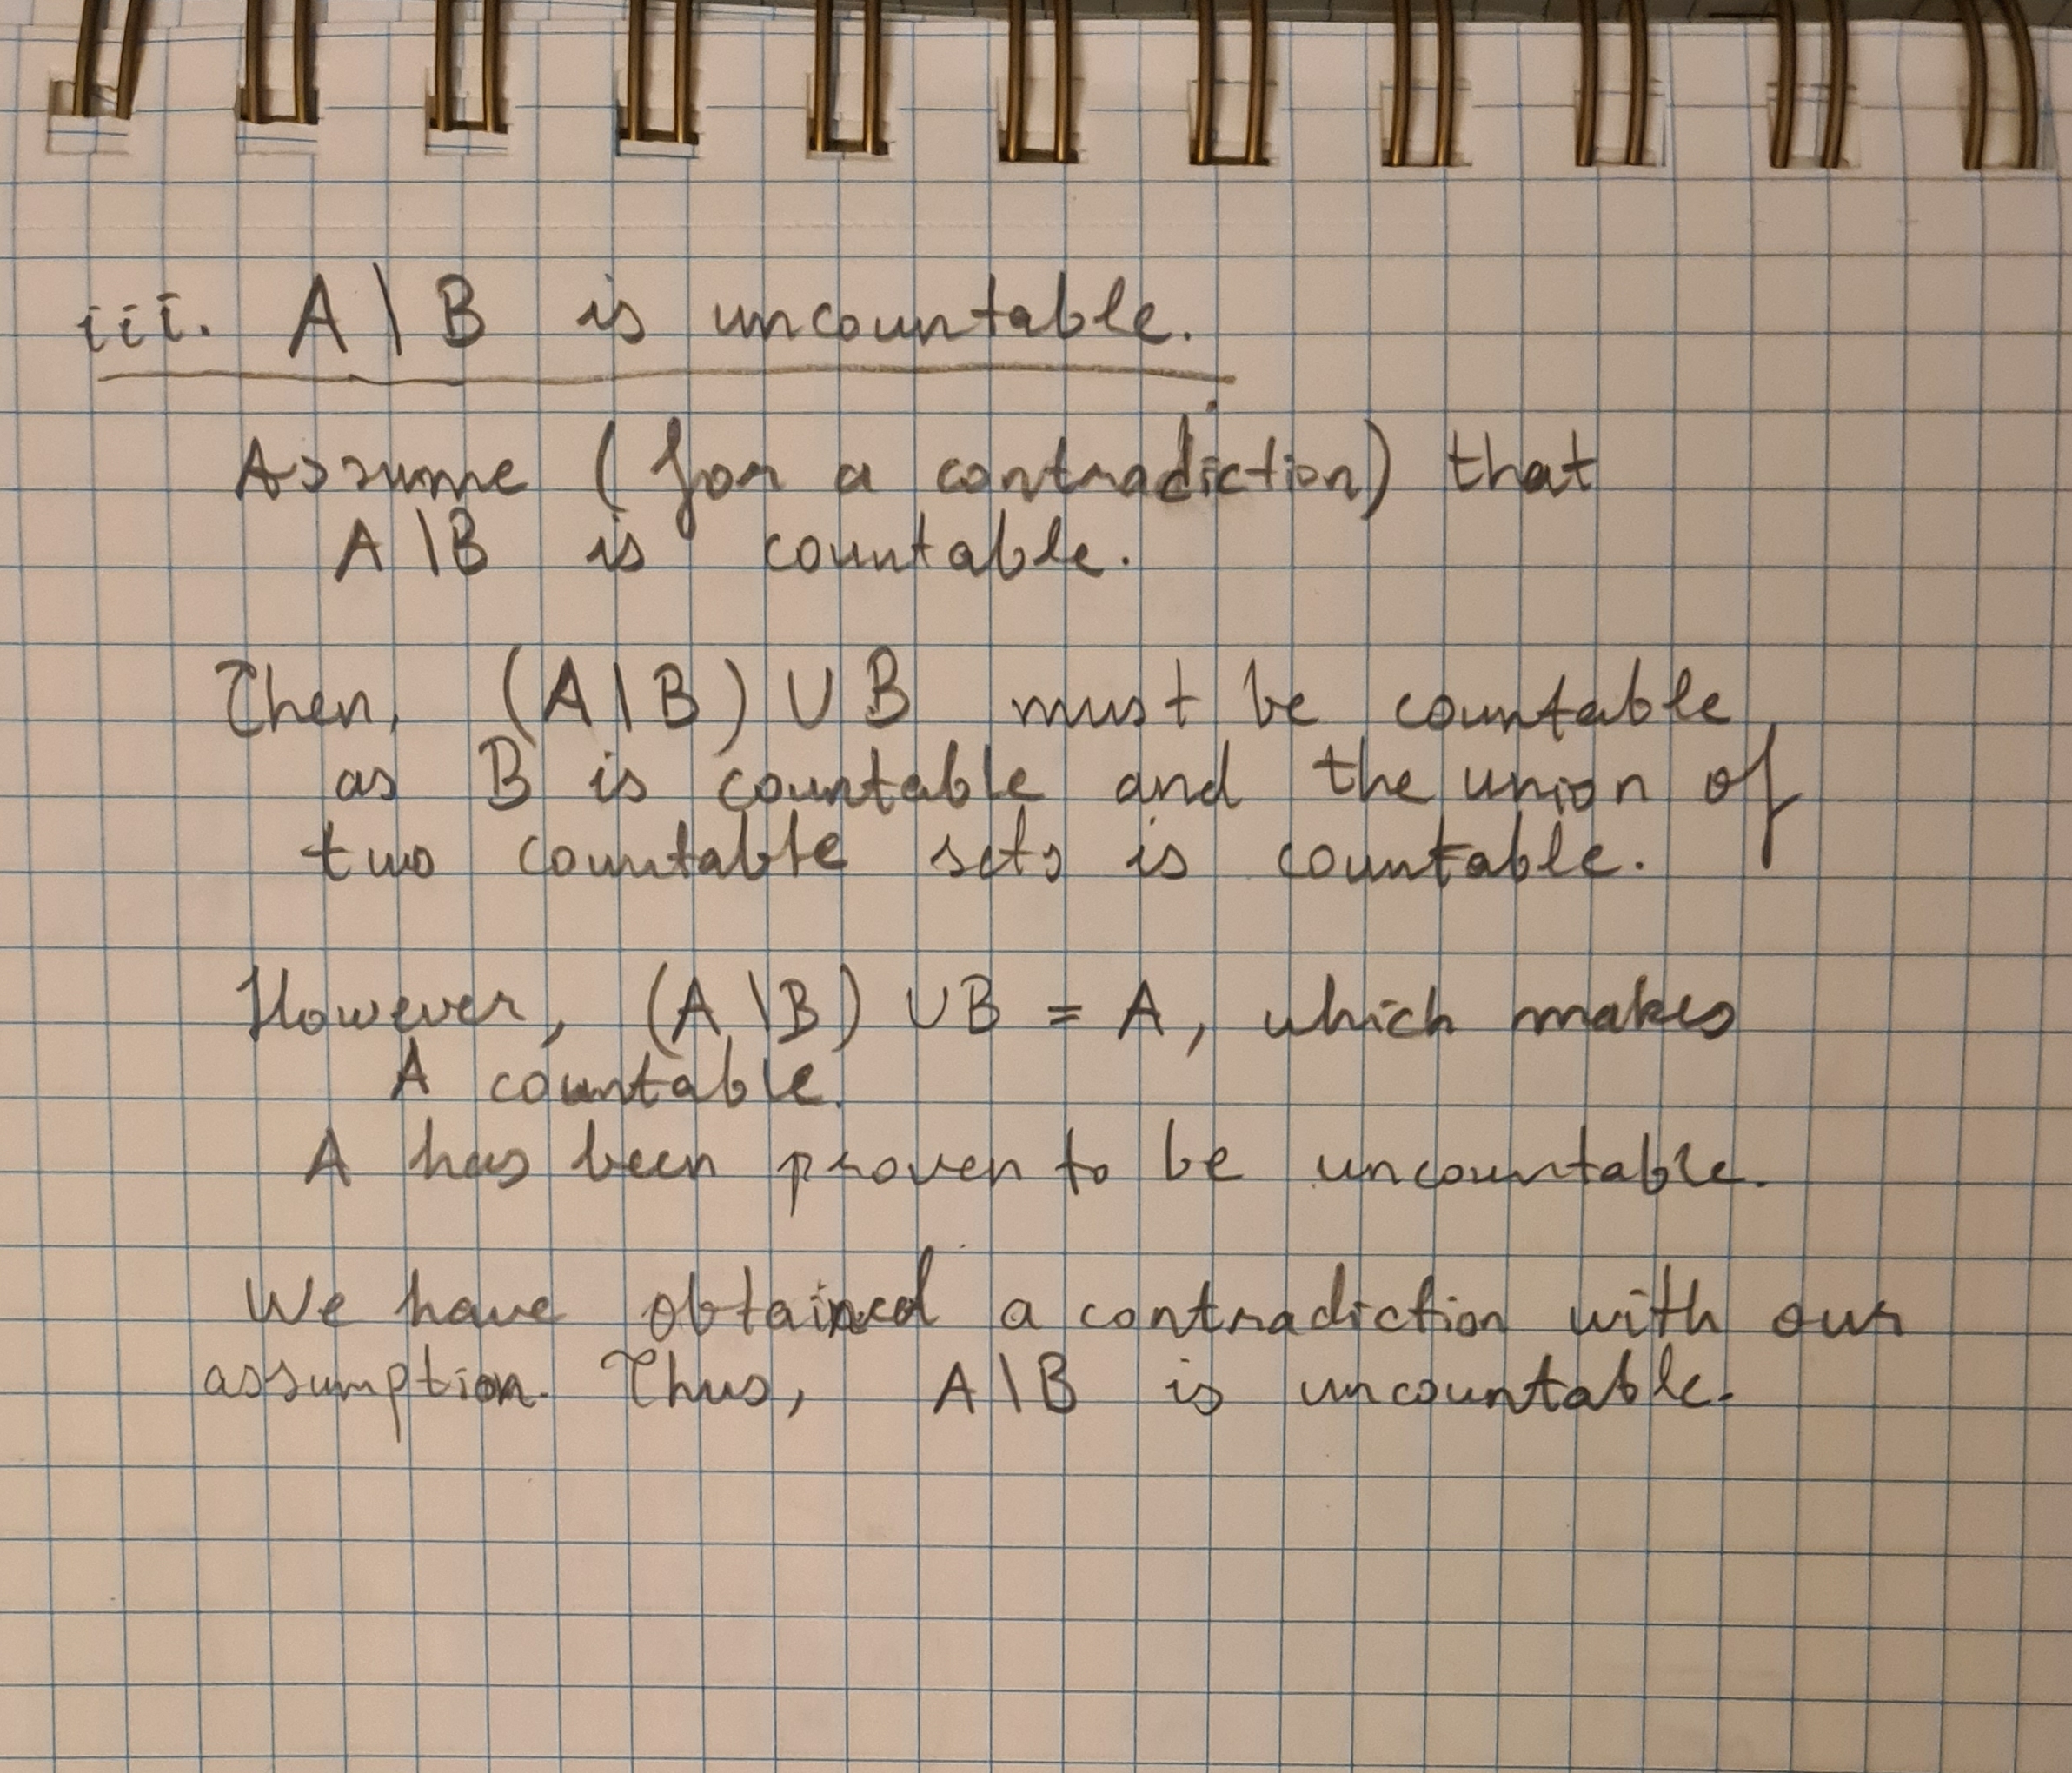 iii. A \ B is uncountable.
Assume (for a contradiction) that
A \ B is countable.
Then, (A \ B) ∪ B must be countable,
as B is countable and the union of
two countable sets is countable.
However, (A \ B) ∪ B = A, which makes
A countable.
A has been proven to be uncountable.
We have obtained a contradiction with our
assumption. Thus, A \ B is uncountable.